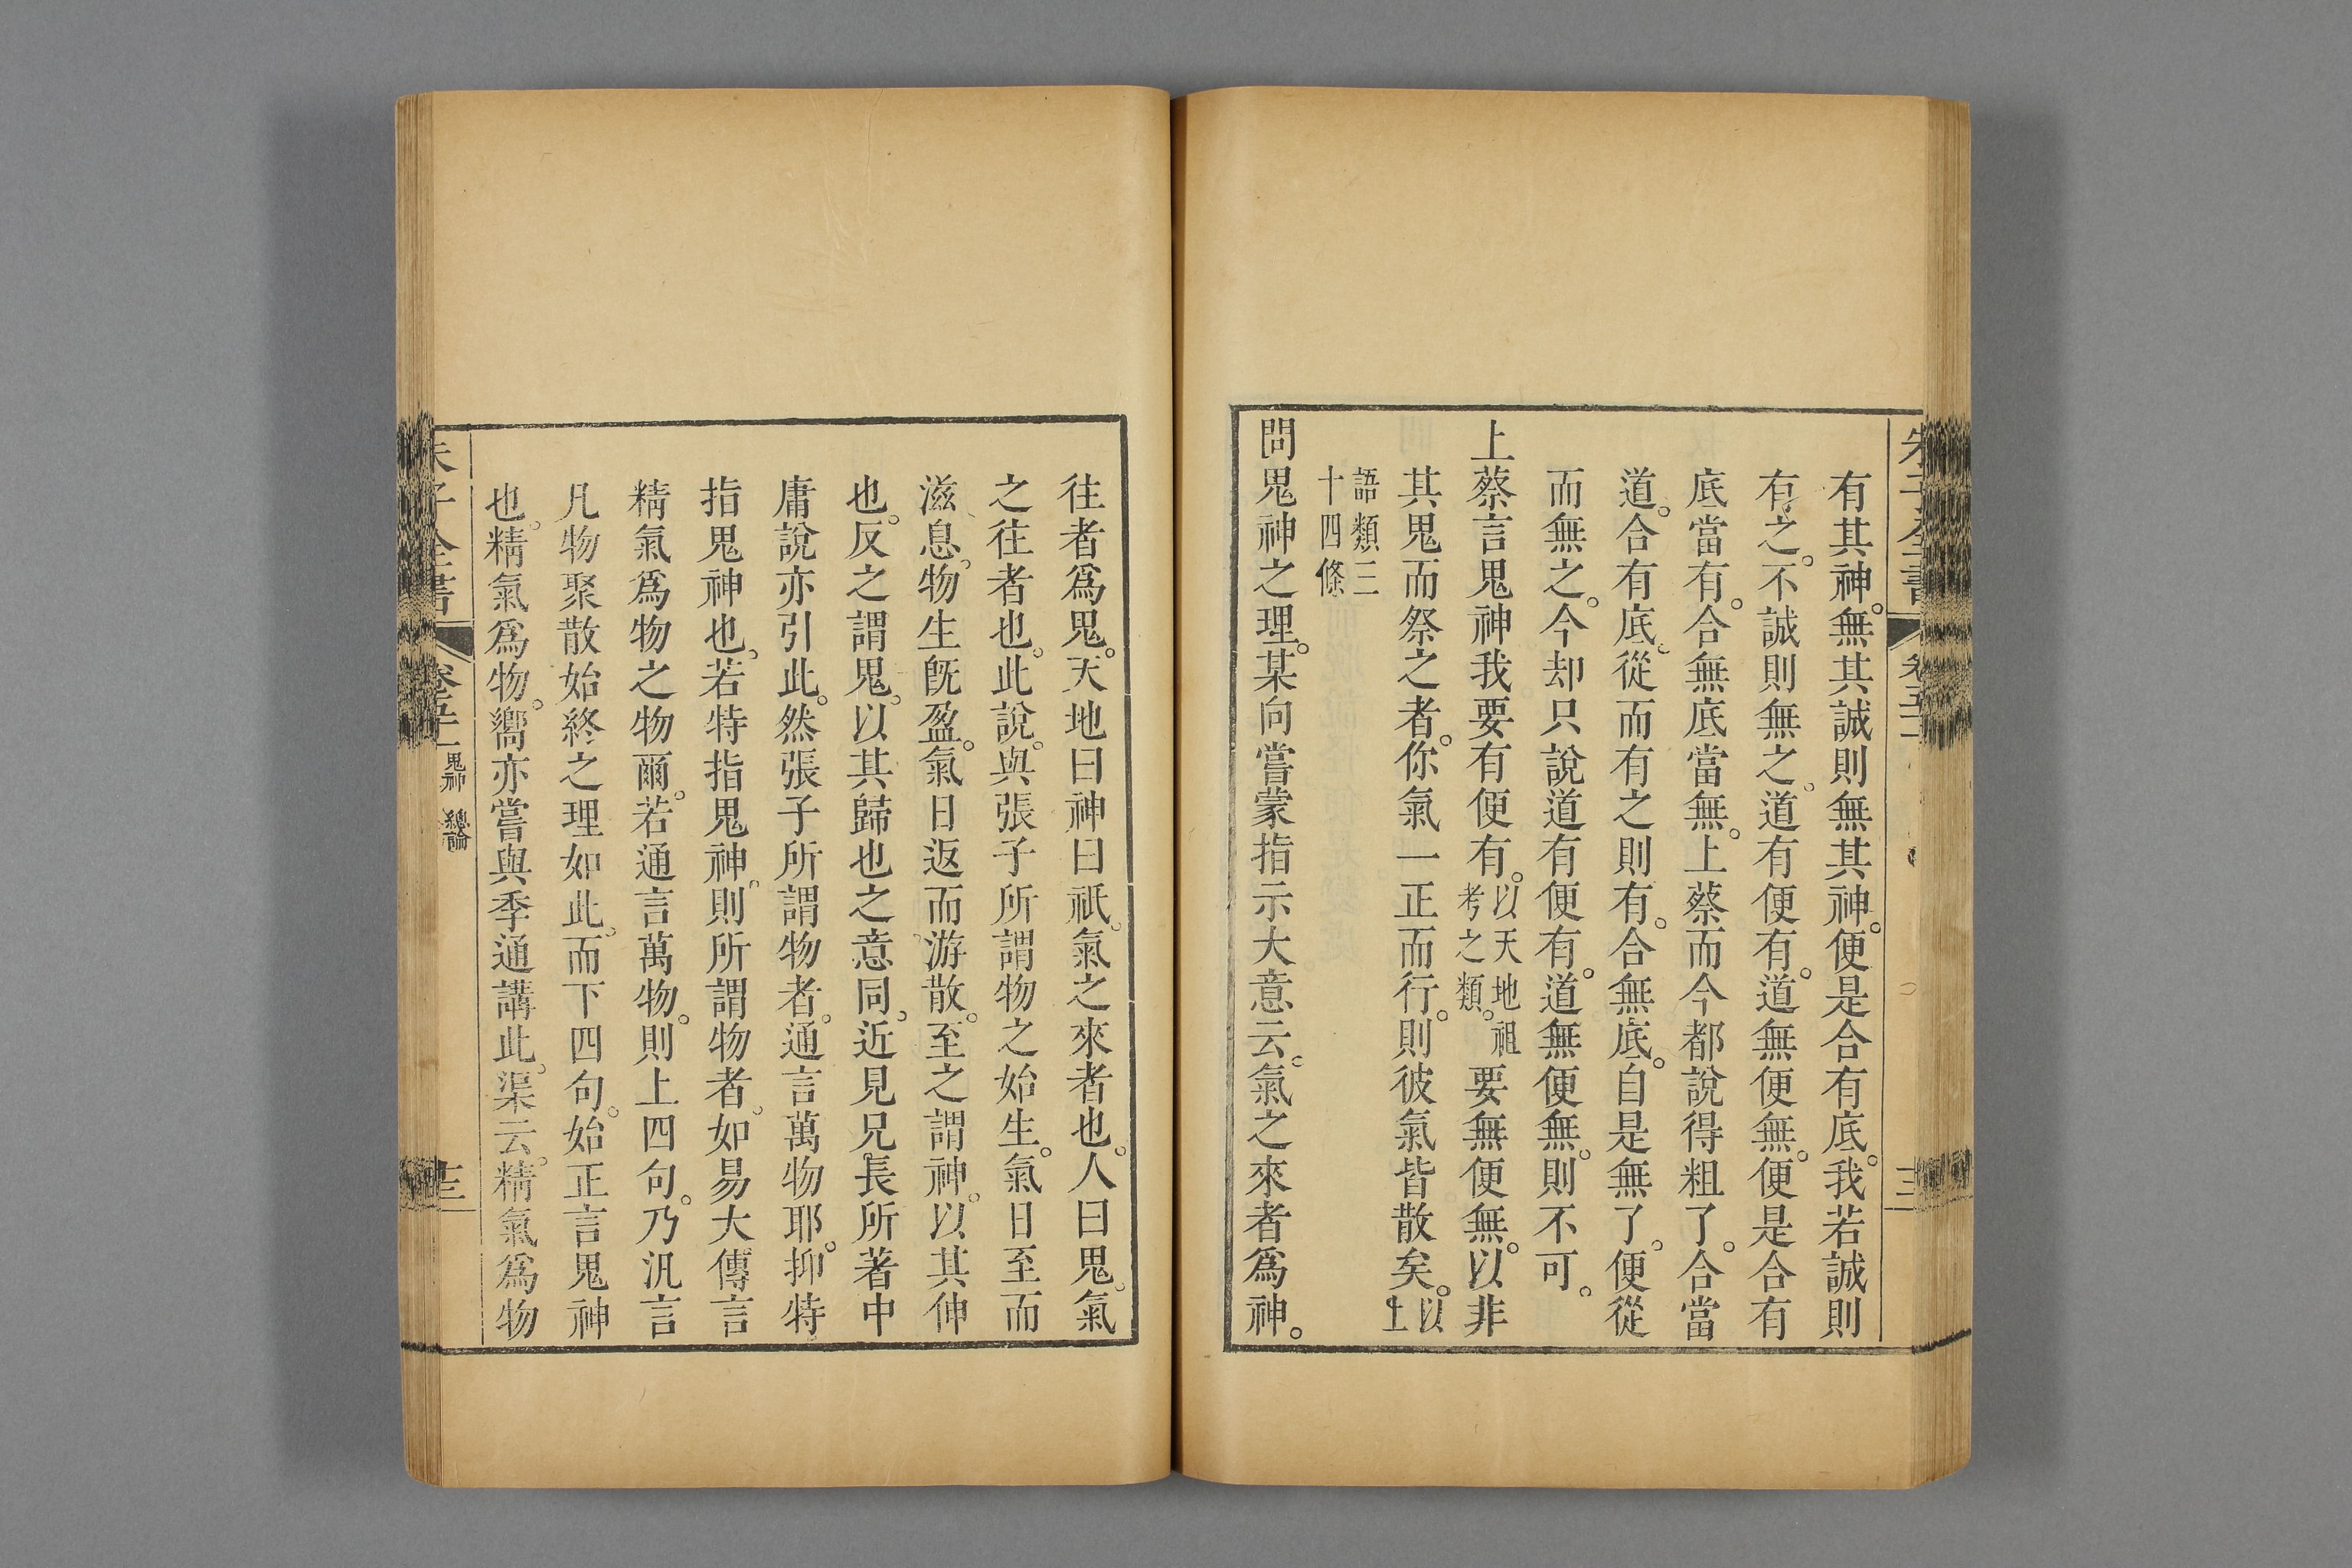 有其神。無其誠則無其神。便是合有底。我若誠則
有之。不誠則無之。道有便有。道無便無。便是合有
底當有。合無底當無。上蔡而今都說得粗了。合當
道。合有底。從而有之則有。合無底。自是無了。便從
而無之。今却只說道有便有。道無便無。則不可。
上蔡言鬼神我要有便有。以天地祖考之類。要無便無。以非
其鬼而祭之者。你氣一正而行。則彼氣皆散矣。以上
語類三十四條
問鬼神之理。某向嘗蒙指示大意云。氣之來者爲神。
往者爲鬼。天地曰神曰祇。氣之來者也。人曰鬼。氣
之往者也。此說。與張子所謂物之始生。氣日至而
滋息。物生旣盈。氣日返而游散。至之謂神。以其伸
也。反之謂鬼。以其歸也之意同。近見兄長所著中
庸說亦引此。然張子所謂物者。通言萬物耶。抑特
指鬼神也。若特指鬼神。則所謂物者。如易大傳言
精氣爲物之物爾。若通言萬物。則上四句。乃汎言
凡物聚散始終之理如此。而下四句。始正言鬼神
也。精氣爲物。嚮亦嘗與季通講此。渠云。精氣爲物
朱子全書
鬼神 總論
十三